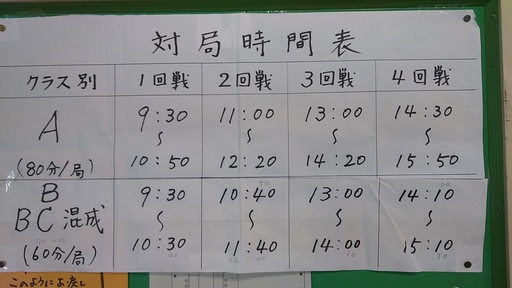 対局時間表
クラス別 1回戦 2回戦 3回戦 4回戦
A (80分/局) 9:30〜10:50 11:00〜12:20 13:00〜14:20 14:30〜15:50
B BC混成 (60分/局) 9:30〜10:30 10:40〜11:40 13:00〜14:00 14:10〜15:10
このようにお戻し